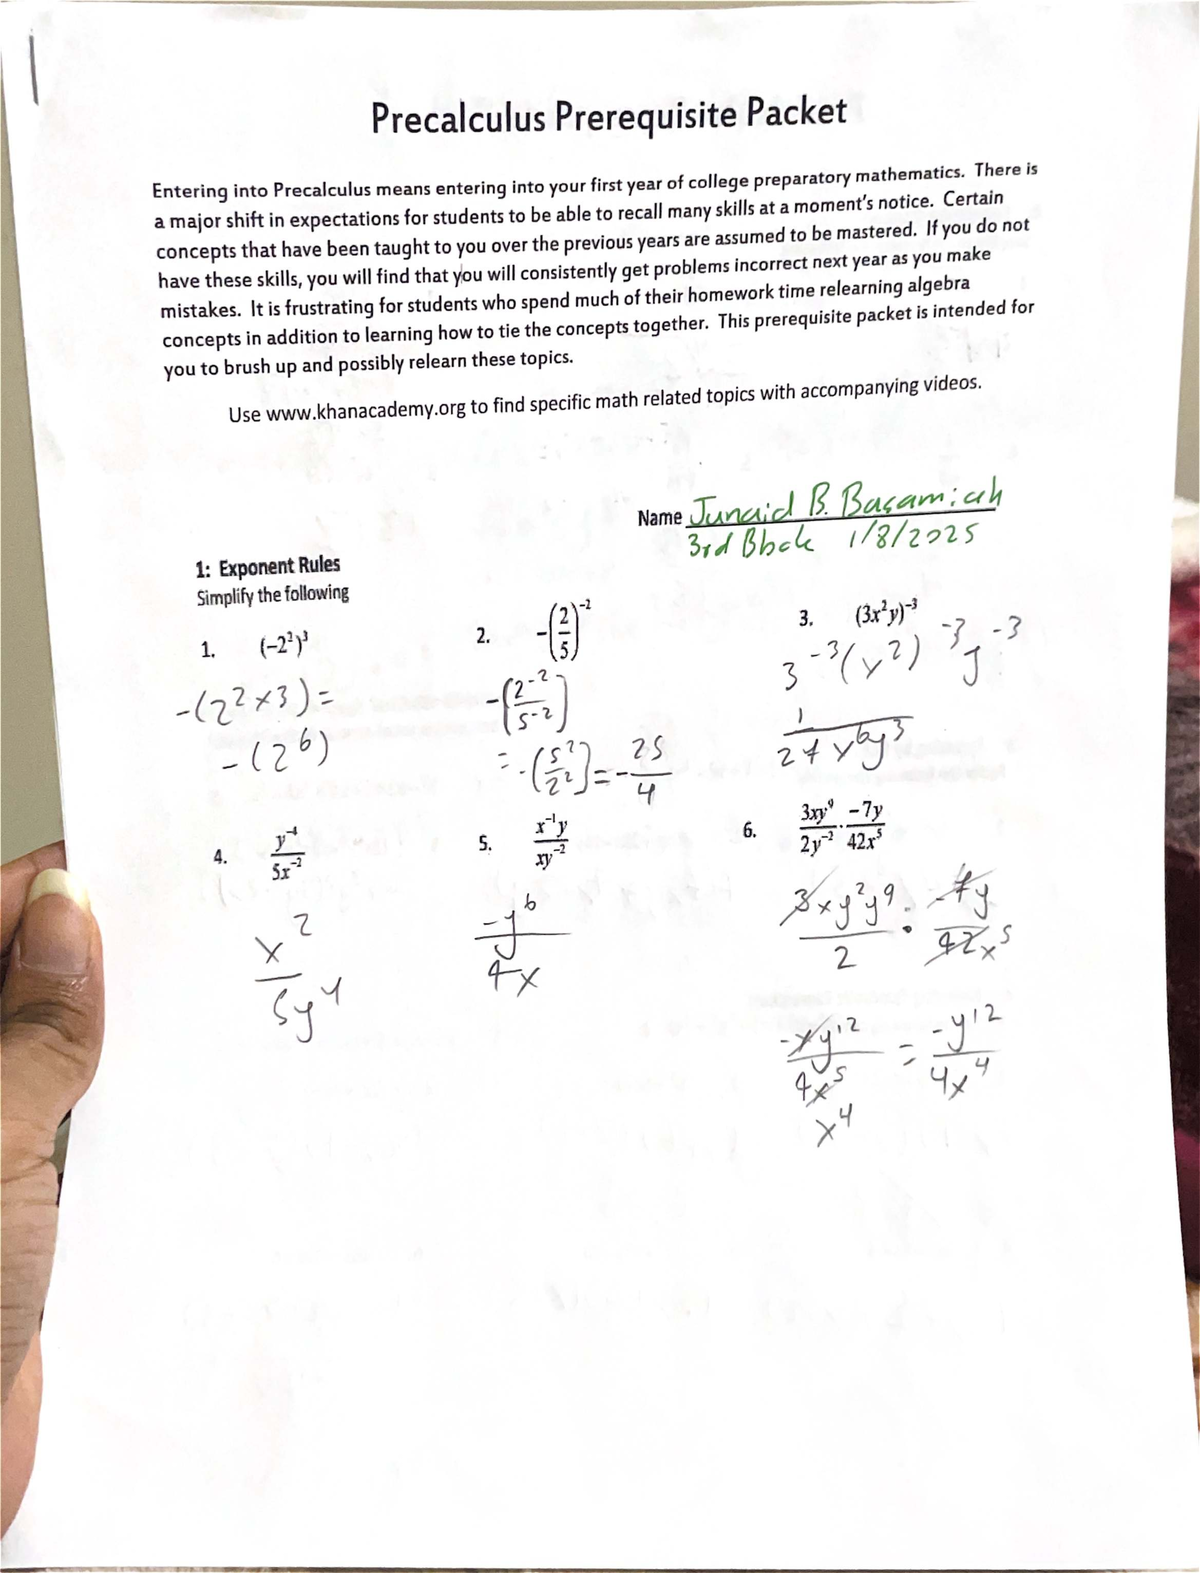 Precalculus Prerequisite Packet
Entering into Precalculus means entering into your first year of college preparatory mathematics. There is
a major shift in expectations for students to be able to recall many skills at a moment's notice. Certain
concepts that have been taught to you over the previous years are assumed to be mastered. If you do not
have these skills, you will find that you will consistently get problems incorrect next year as you make
mistakes. It is frustrating for students who spend much of their homework time relearning algebra
concepts in addition to learning how to tie the concepts together. This prerequisite packet is intended for
you to brush up and possibly relearn these topics.
Use www.khanacademy.org to find specific math related topics with accompanying videos.
Name Junaid B. Basamiah
3rd Block 1/8/2025
1: Exponent Rules
Simplify the following
1. (-2²)³
-(2² × 3) =
-(2⁶)
2. -(2/5)⁻²
-(2⁻²/5⁻²)
= -(5²/2²) = -25/4
3. (3x²y)⁻³
3⁻³(x²)⁻³y⁻³
1/27x⁶y³
4. y⁻⁴/5x⁻²
x²/5y⁴
5. x⁻¹y/xy⁻²
-y⁶/4x
6. 3xy⁹/2y⁻² · -7y/42x⁵
3xy²y⁹/2 · -7y/42x⁵
-xy¹²/4x⁵ = -y¹²/4x⁴
x⁴